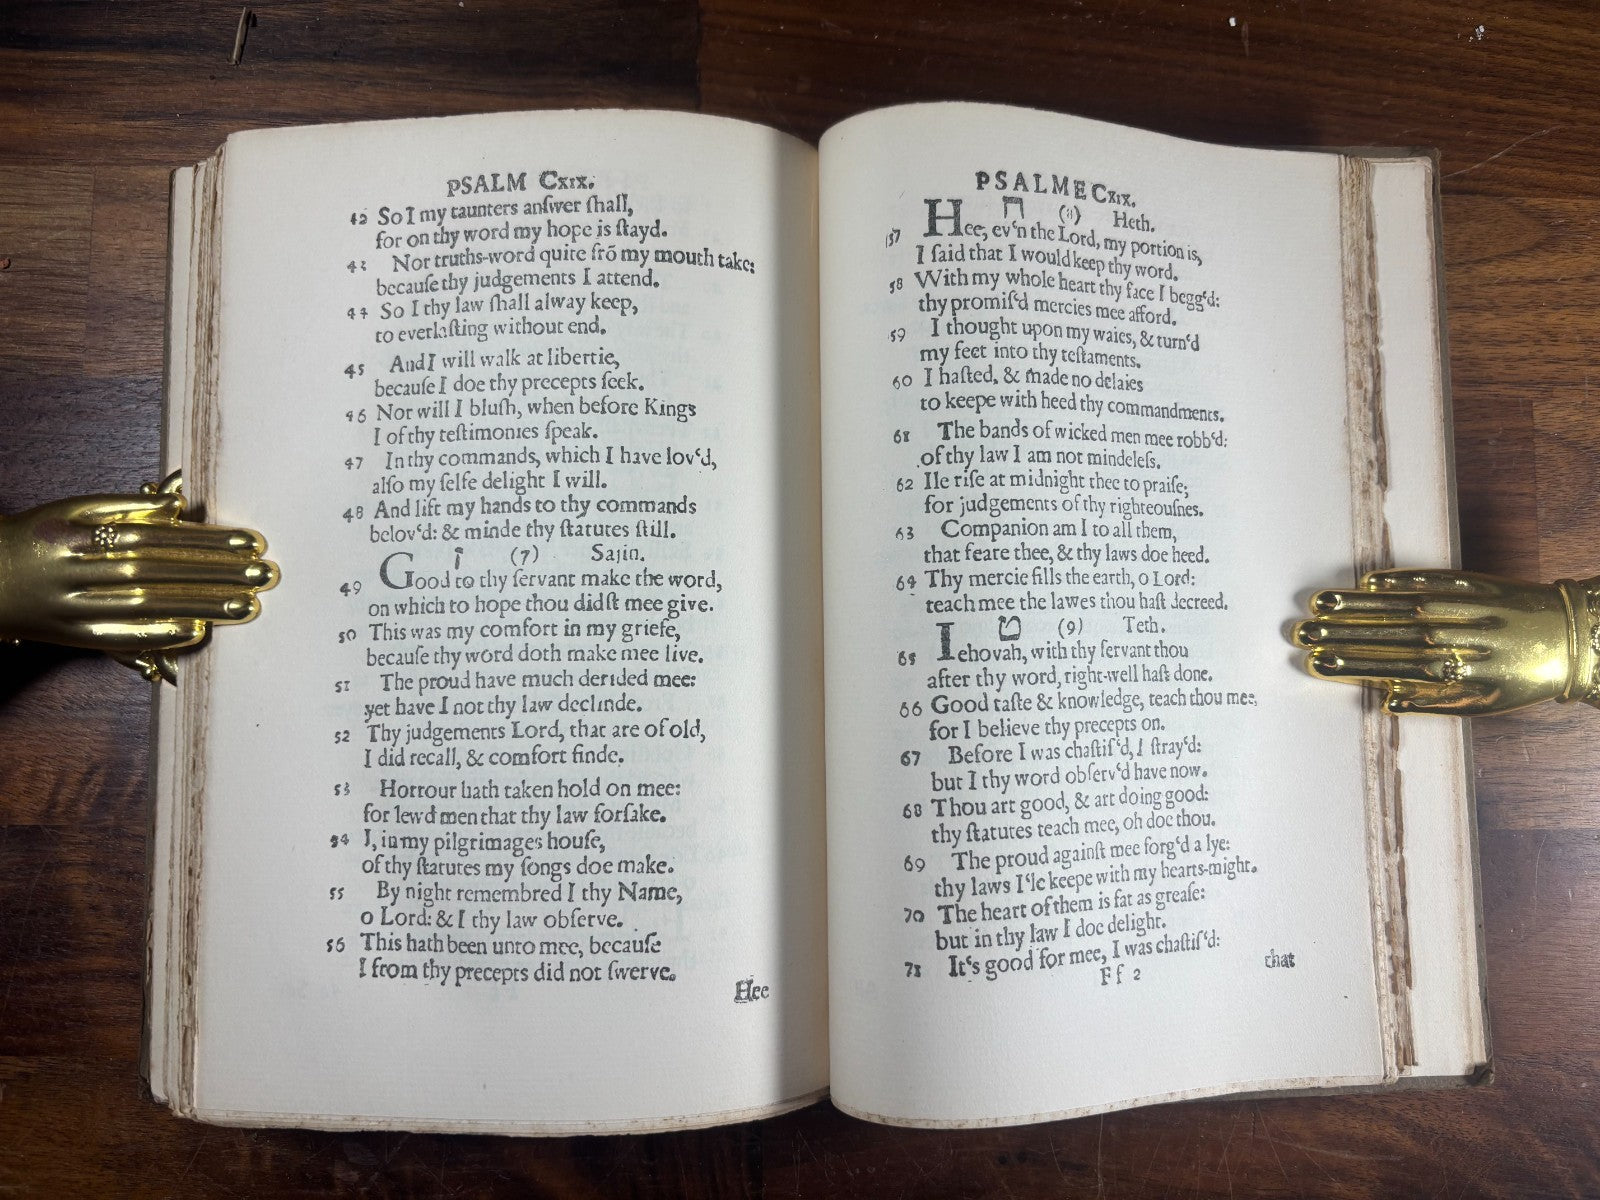 PSALM Cxix.
42 So I my taunters anſwer ſhall,
for on thy word my hope is ſtayd.
43 Nor truths-word quite frõ my mouth take:
becauſe thy judgements I attend.
44 So I thy law ſhall alway keep,
to everlaſting without end.
45 And I will walk at libertie,
becauſe I doe thy precepts ſeek.
46 Nor will I bluſh, when before Kings
I of thy teſtimonies ſpeak.
47 In thy commands, which I have lov‘d,
alſo my ſelfe delight I will.
48 And lift my hands to thy commands
belov‘d: & minde thy ſtatutes ſtill.
ז (7) Sajin.
49 Good to thy ſervant make the word,
on which to hope thou didſt mee give.
50 This was my comfort in my griefe,
becauſe thy word doth make mee live.
51 The proud have much derided mee:
yet have I not thy law declinde.
52 Thy judgements Lord, that are of old,
I did recall, & comfort finde.
53 Horrour hath taken hold on mee:
for lewd men that thy law forſake.
54 I, in my pilgrimages houſe,
of thy ſtatutes my ſongs doe make.
55 By night remembred I thy Name,
o Lord: & I thy law obſerve.
56 This hath been unto mee, becauſe
I from thy precepts did not ſwerve.
Hee
PSALME Cxix.
ח (8) Heth.
57 Hee, ev‘n the Lord, my portion is,
I ſaid that I would keep thy word.
58 With my whole heart thy face I begg‘d:
thy promiſ‘d mercies mee afford.
59 I thought upon my waies, & turn‘d
my feet into thy teſtaments.
60 I haſted, & made no delaies
to keepe with heed thy commandments.
61 The bands of wicked men mee robb‘d:
of thy law I am not mindeleſs.
62 Ile riſe at midnight thee to praiſe;
for judgements of thy righteouſnes.
63 Companion am I to all them,
that feare thee, & thy laws doe heed.
64 Thy mercie fills the earth, o Lord:
teach mee the lawes thou haſt decreed.
ט (9) Teth.
65 Iehovah, with thy ſervant thou
after thy word, right-well haſt done.
66 Good taſte & knowledge, teach thou mee,
for I believe thy precepts on.
67 Before I was chaſtiſ‘d, I ſtray‘d:
but I thy word obſerv‘d have now.
68 Thou art good, & art doing good:
thy ſtatutes teach mee, oh doe thou.
69 The proud againſt mee forg‘d a lye:
thy laws I‘le keepe with my hearts-might.
70 The heart of them is fat as greaſe:
but in thy law I doe delight.
71 It‘s good for mee, I was chaſtiſ‘d:
Ff 2 that